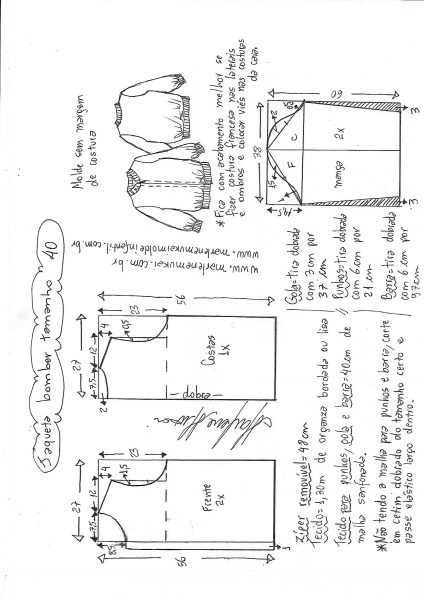 Jaqueta bomber tamanho 40
Molde sem margem
de costura
* Fica com acabamento melhor se
fizer costura francesa nas laterais
e ombros e colocar viés nas costuras
da cava.
www.marlenemukai.com.br
www.marlenemukaimoldeinfantil.com.br
27
7,5
12
4
23
1,5
8,5
Frente
2x
56
1
27
7,5
12
4
2
23
0,5
Costas
1x
dobra
56
38
60
2
C
F
1,5
14,5
manga
2x
3
3
Gola=tira dobrada
com 3cm por
37 cm
Punhos=tira dobrada
com 6cm por
21 cm
Barra=tira dobrada
com 6cm por
97cm
Zíper removível=48cm
Tecido=1,70m de organza bordada ou lisa
Tecido para punhos, gola e barra=40cm de
malha sanfonada.
*Não tendo a malha para punhos e barra, corte
em cetim dobrado do tamanho certo e
passe elástico largo dentro.